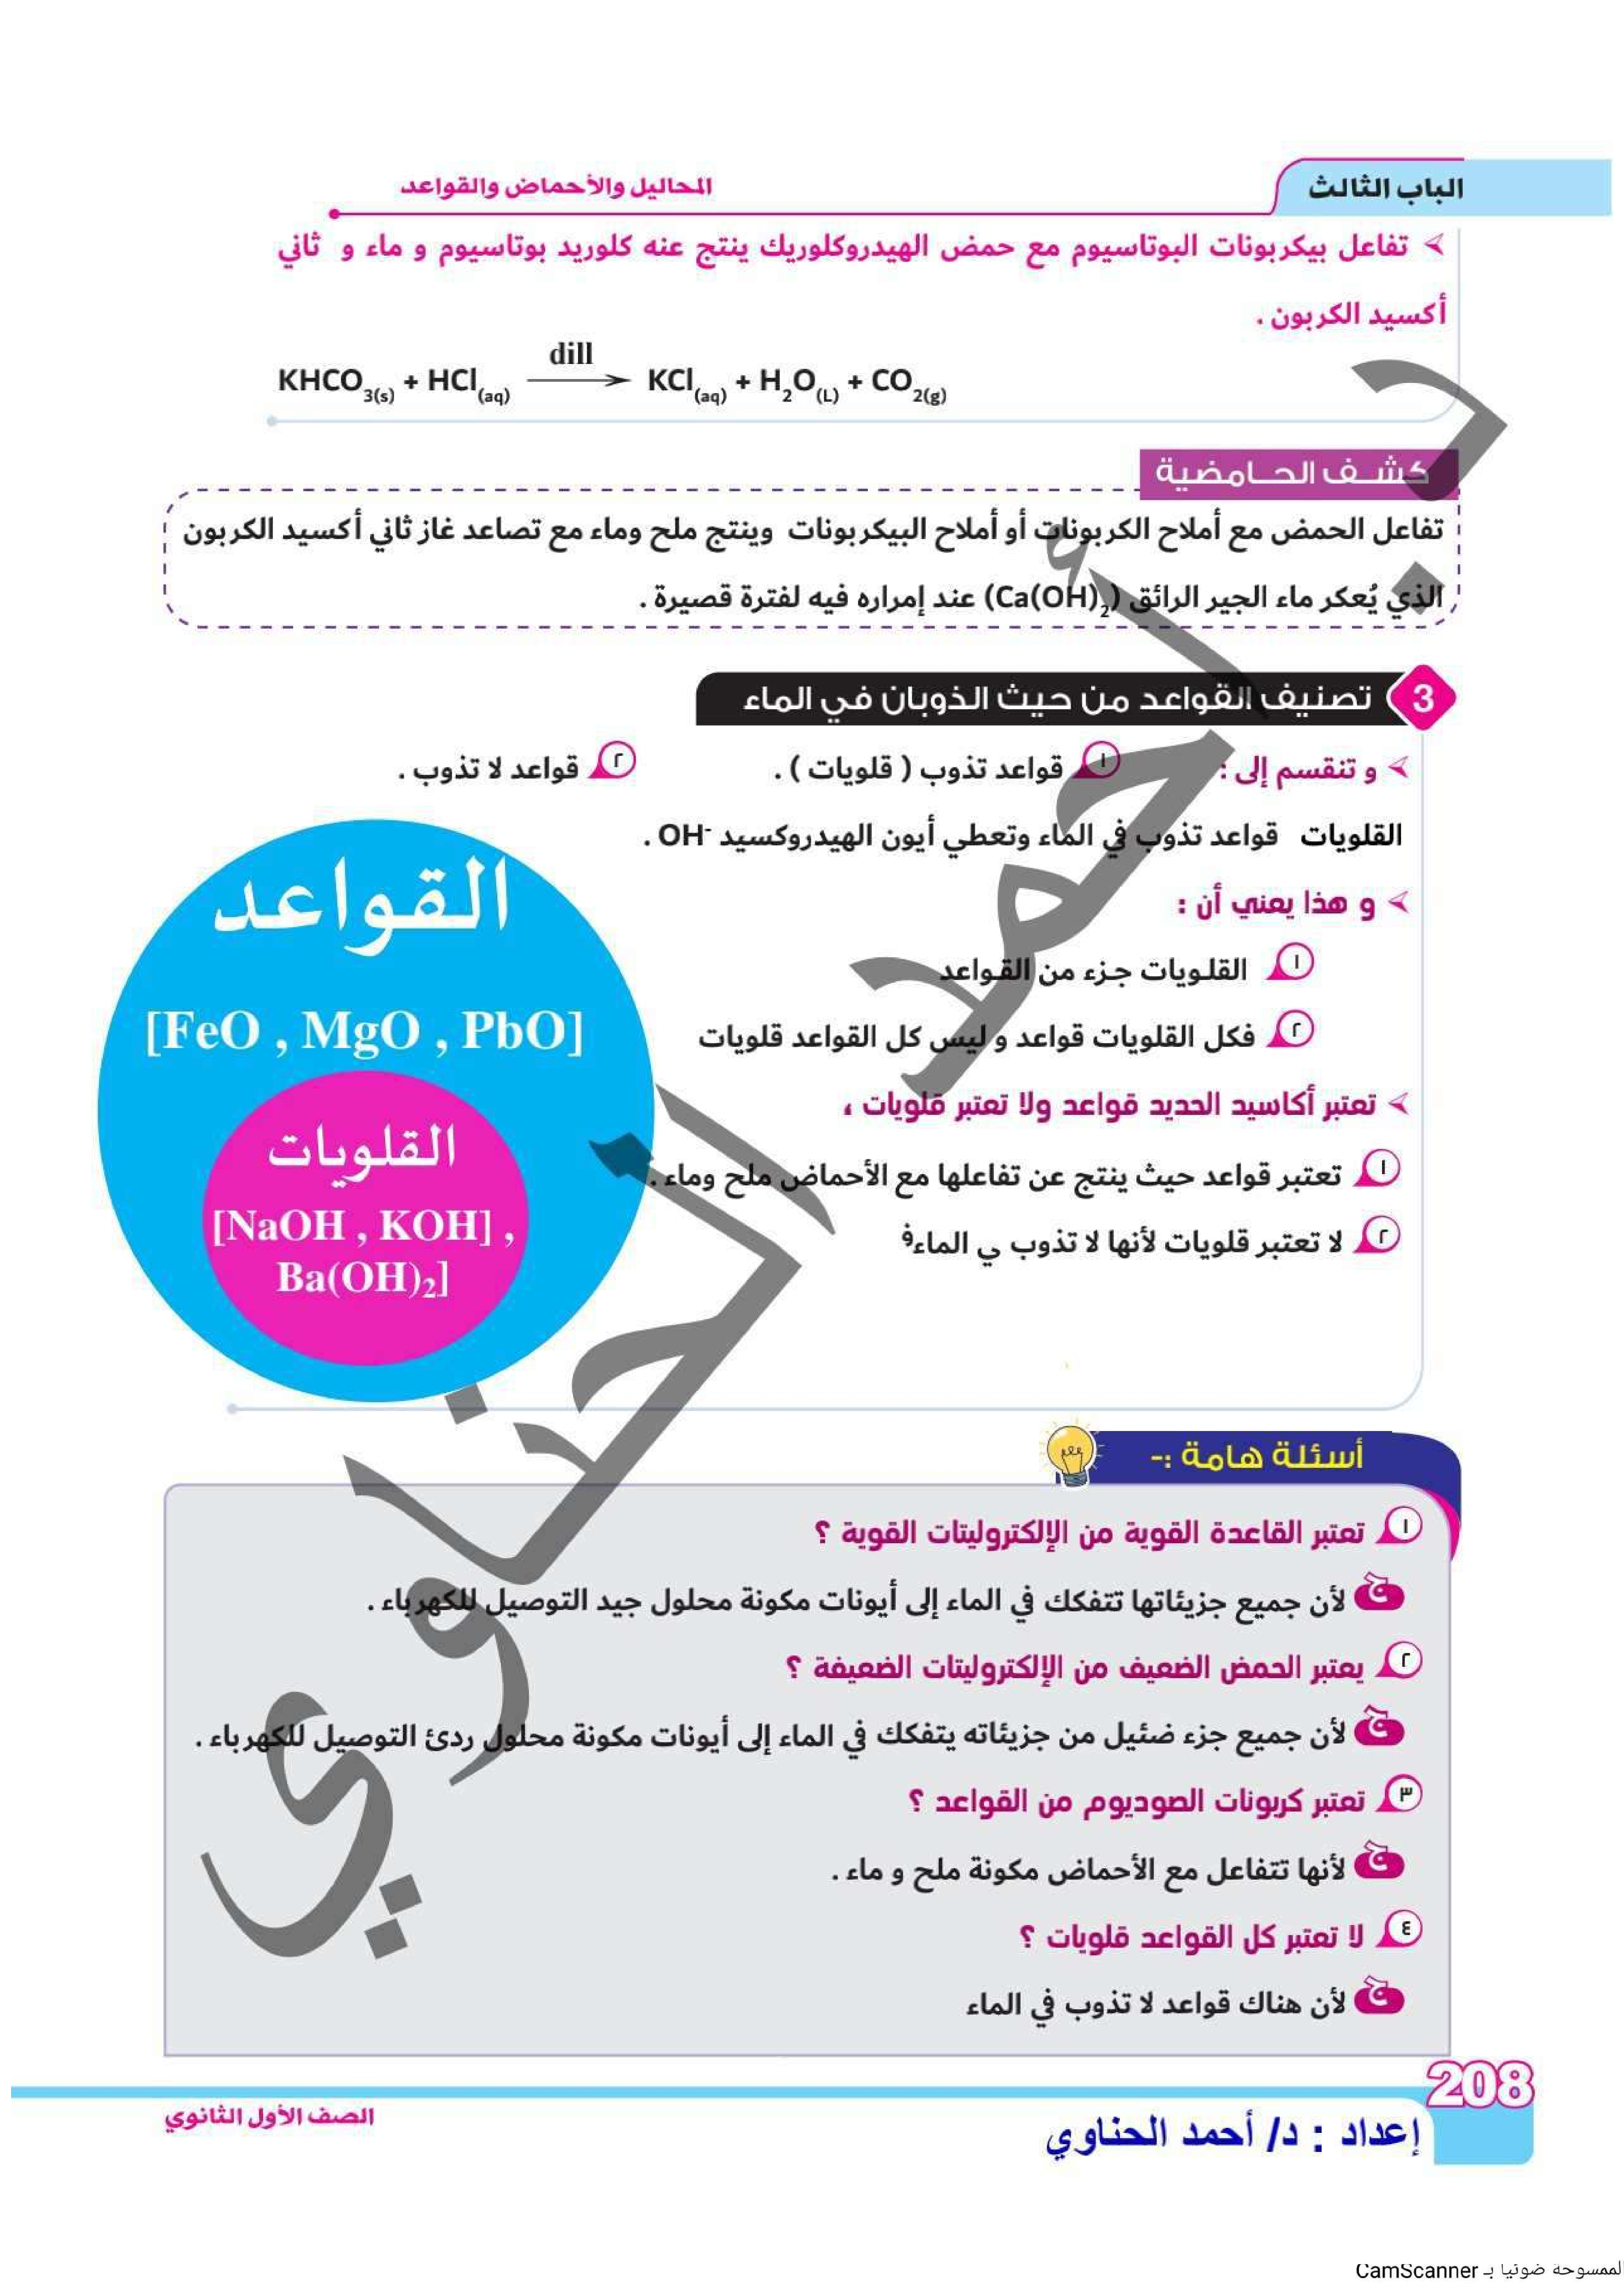 الباب الثالث
المحاليل والأحماض والقواعد
تفاعل بيكربونات البوتاسيوم مع حمض الهيدروكلوريك ينتج عنه كلوريد بوتاسيوم و ماء و ثاني
أكسيد الكربون .
dill
KHCO3(s) + HCl(aq) ⟶ KCl(aq) + H2O(L) + CO2(g)
كشف الحامضية
تفاعل الحمض مع أملاح الكربونات أو أملاح البيكربونات وينتج ملح وماء مع تصاعد غاز ثاني أكسيد الكربون
الذي يُعكر ماء الجير الرائق (Ca(OH)2) عند إمراره فيه لفترة قصيرة .
3 تصنيف القواعد من حيث الذوبان في الماء
و تنقسم إلى : ١ قواعد تذوب ( قلويات ) . ٢ قواعد لا تذوب .
القلويات قواعد تذوب في الماء وتعطي أيون الهيدروكسيد OH- .
و هذا يعني أن :
١ القلويات جزء من القواعد
٢ فكل القلويات قواعد و ليس كل القواعد قلويات
تعتبر أكاسيد الحديد قواعد ولا تعتبر قلويات ،
١ تعتبر قواعد حيث ينتج عن تفاعلها مع الأحماض ملح وماء .
٢ لا تعتبر قلويات لأنها لا تذوب ي الماءف
القواعد
[FeO , MgO , PbO]
القلويات
[NaOH , KOH] ,
Ba(OH)2]
أسئلة هامة :-
١ تعتبر القاعدة القوية من الإلكتروليتات القوية ؟
ج لأن جميع جزيئاتها تتفكك في الماء إلى أيونات مكونة محلول جيد التوصيل للكهرباء .
٢ يعتبر الحمض الضعيف من الإلكتروليتات الضعيفة ؟
ج لأن جميع جزء ضئيل من جزيئاته يتفكك في الماء إلى أيونات مكونة محلول ردئ التوصيل للكهرباء .
٣ تعتبر كربونات الصوديوم من القواعد ؟
ج لأنها تتفاعل مع الأحماض مكونة ملح و ماء .
٤ لا تعتبر كل القواعد قلويات ؟
ج لأن هناك قواعد لا تذوب في الماء
د. أحمد الحناوي
208
إعداد : د/ أحمد الحناوي
الصف الأول الثانوي
الممسوحة ضوئيا بـ CamScanner